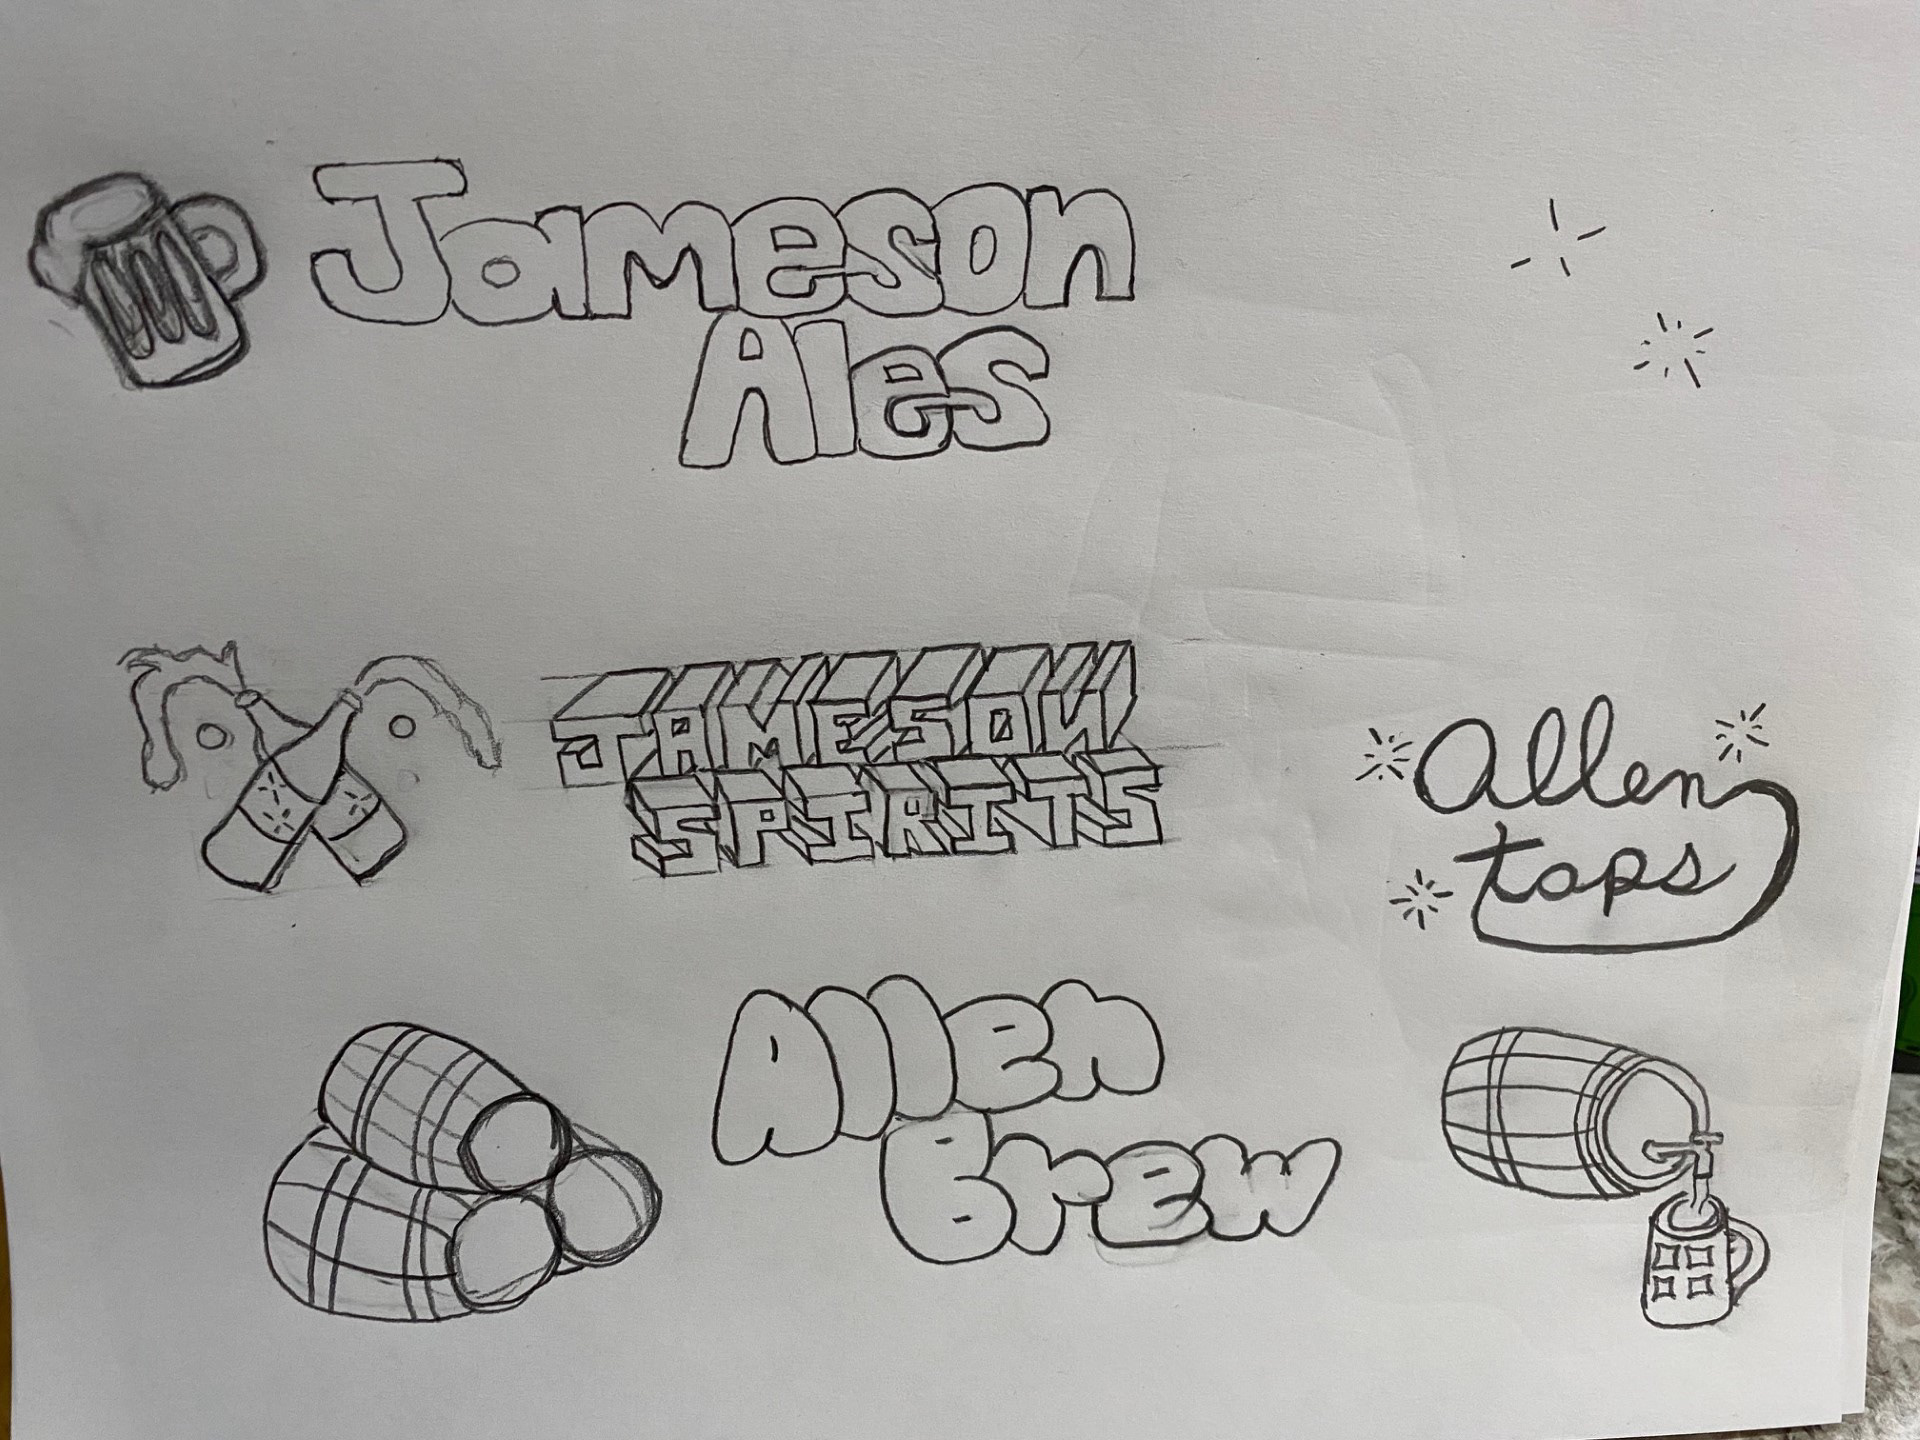 Jameson
Ales
JAMESON
SPIRITS
Allen
taps
Allen
Brew